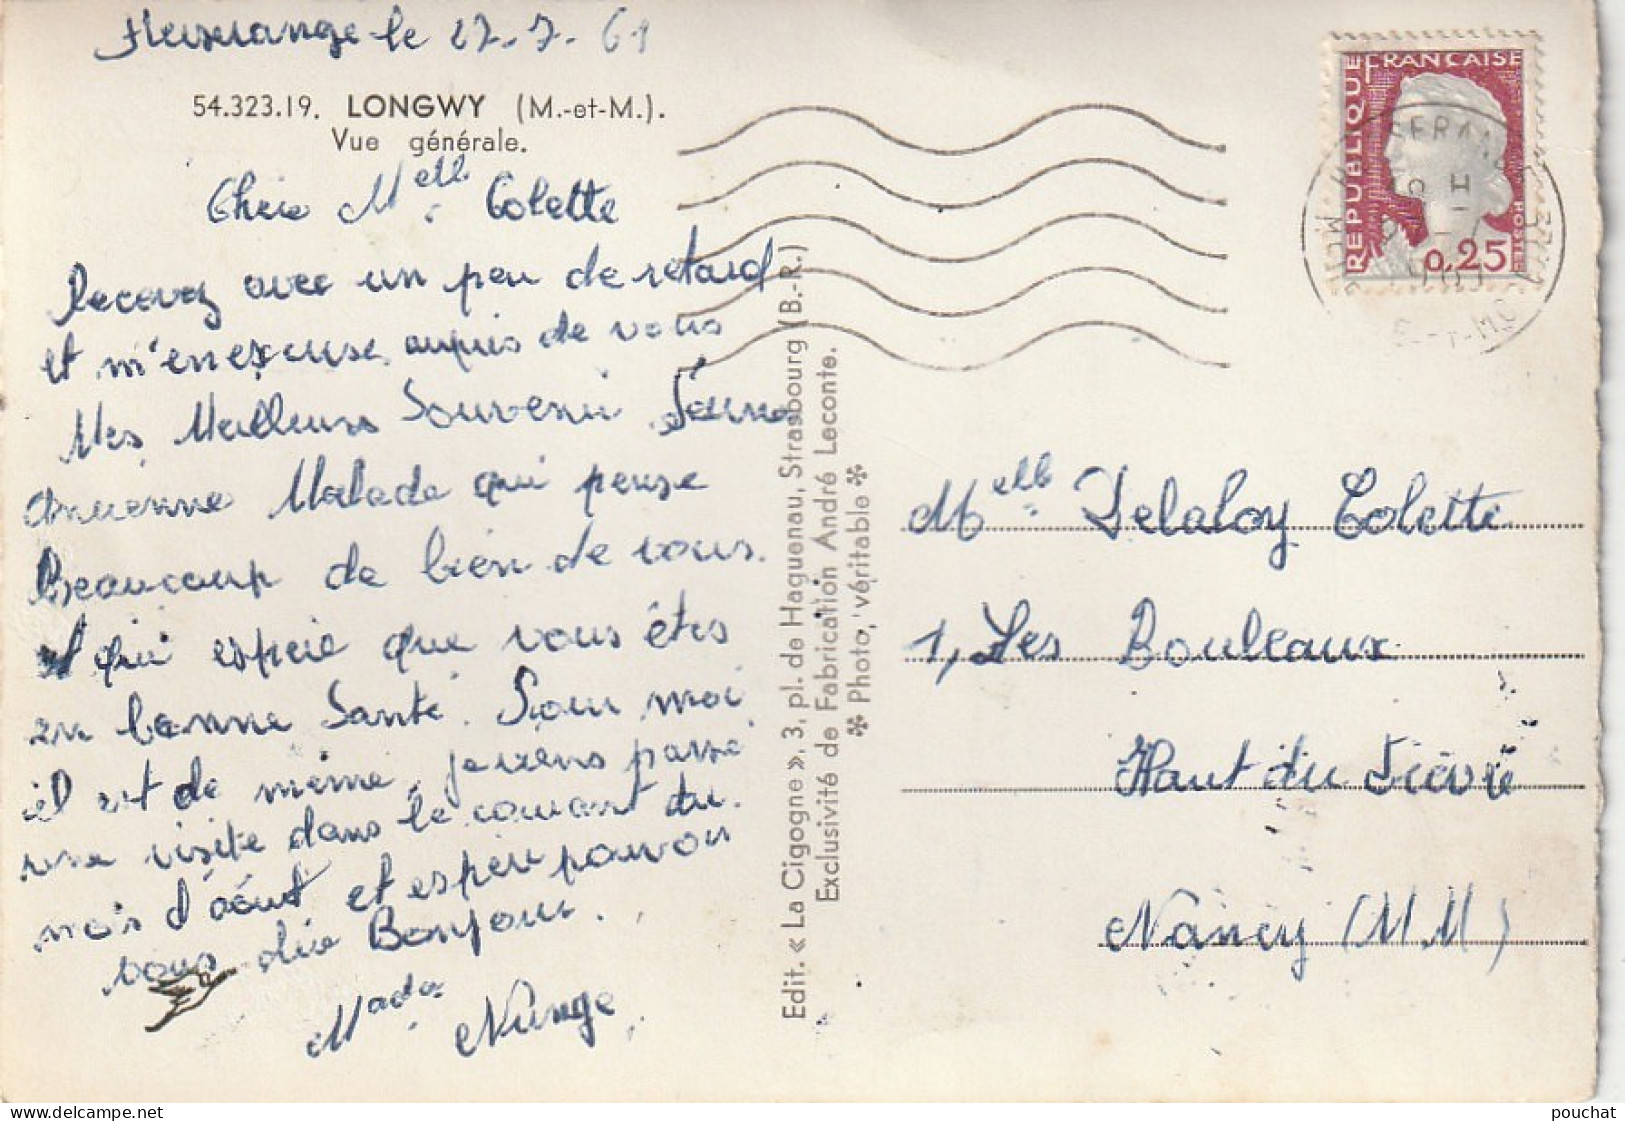 Herserange le 27-7-61
54.323.19. LONGWY (M.-et-M.).
Vue générale.
Chère Melle Colette
Recevez avec un peu de retard
et m'enexcuse aupris de vous
Mes Meilleurs Souvenir d'une
Ancienne Malade qui pense
Beaucoup de bien de vous.
et qui espère que vous êtes
en bonne Santé. Pour moi
il est de même, je viens passé
une visite dans le courant du
mois d'août et espère pouvoir
vous dire Bonjour.
Made Nunge
Edit. « La Cigogne », 3, pl. de Haguenau, Strasbourg (B.-R.)
Exclusivité de Fabrication André Leconte.
✻ Photo véritable ✻
REPUBLIQUE FRANCAISE
0,25
Melle Delaloy Colette
1, Les Bouleaux
Haut du Lièvre
Nancy (M.M)
pouchat